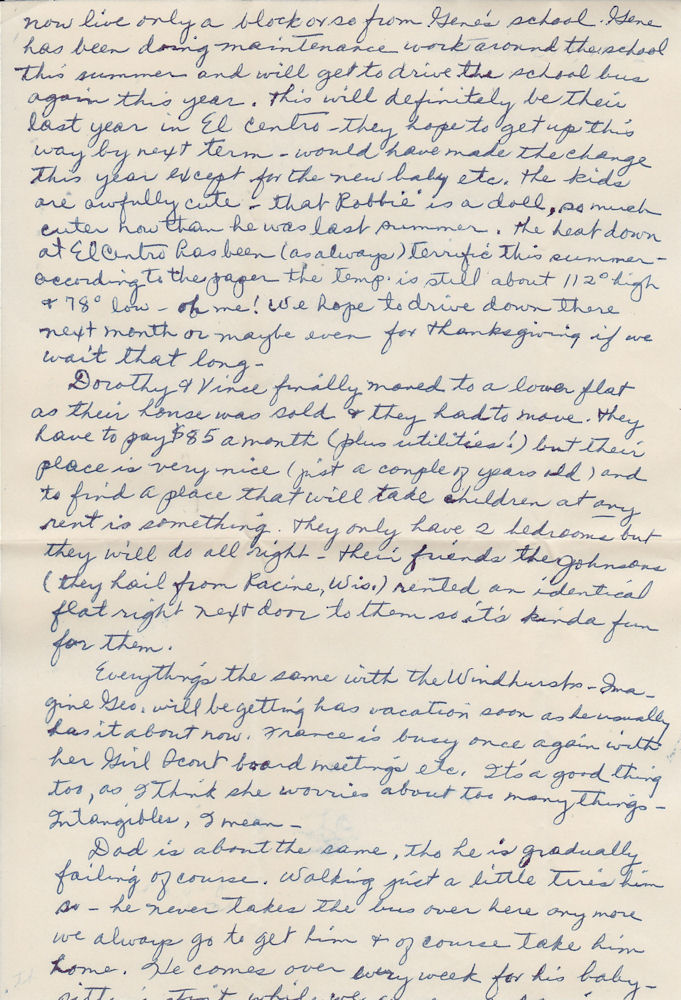 now live only a block or so from Gene's school. Gene
has been doing maintenance work around the school
this summer and will get to drive the school bus
again this year. This will definitely be their
last year in El Centro - they hope to get up this
way by next term - would have made the change
this year except for the new baby etc. The kids
are awfully cute - that Robbie is a doll, so much
cuter now than he was last summer. The heat down
at El Centro has been (as always) terrific this summer -
according to the paper the temp. is still about 112° high
& 78° low - oh me! We hope to drive down there
next month or maybe even for Thanksgiving if we
wait that long -
Dorothy & Vince finally moved to a lower flat
as their house was sold & they had to move. They
have to pay $85 a month (plus utilities!) but their
place is very nice (just a couple of years old) and
to find a place that will take children at any
rent is something. They only have 2 bedrooms but
they will do all right - their friends the Johnsons
(they hail from Racine, Wis.) rented an identical
flat right next door to them so it's kinda fun
for them.
Everything's the same with the Windhursts - Ima-
gine Geo. will be getting has vacation soon as he usually
has it about now. France is busy once again with
her Girl Scout board meetings etc. It's a good thing
too, as I think she worries about too many things -
Intangibles, I mean -
Dad is about the same, tho he is gradually
failing of course. Walking just a little tires him
so - he never takes the bus over here any more
we always go to get him & of course take him
home. He comes over every week for his baby-
while we